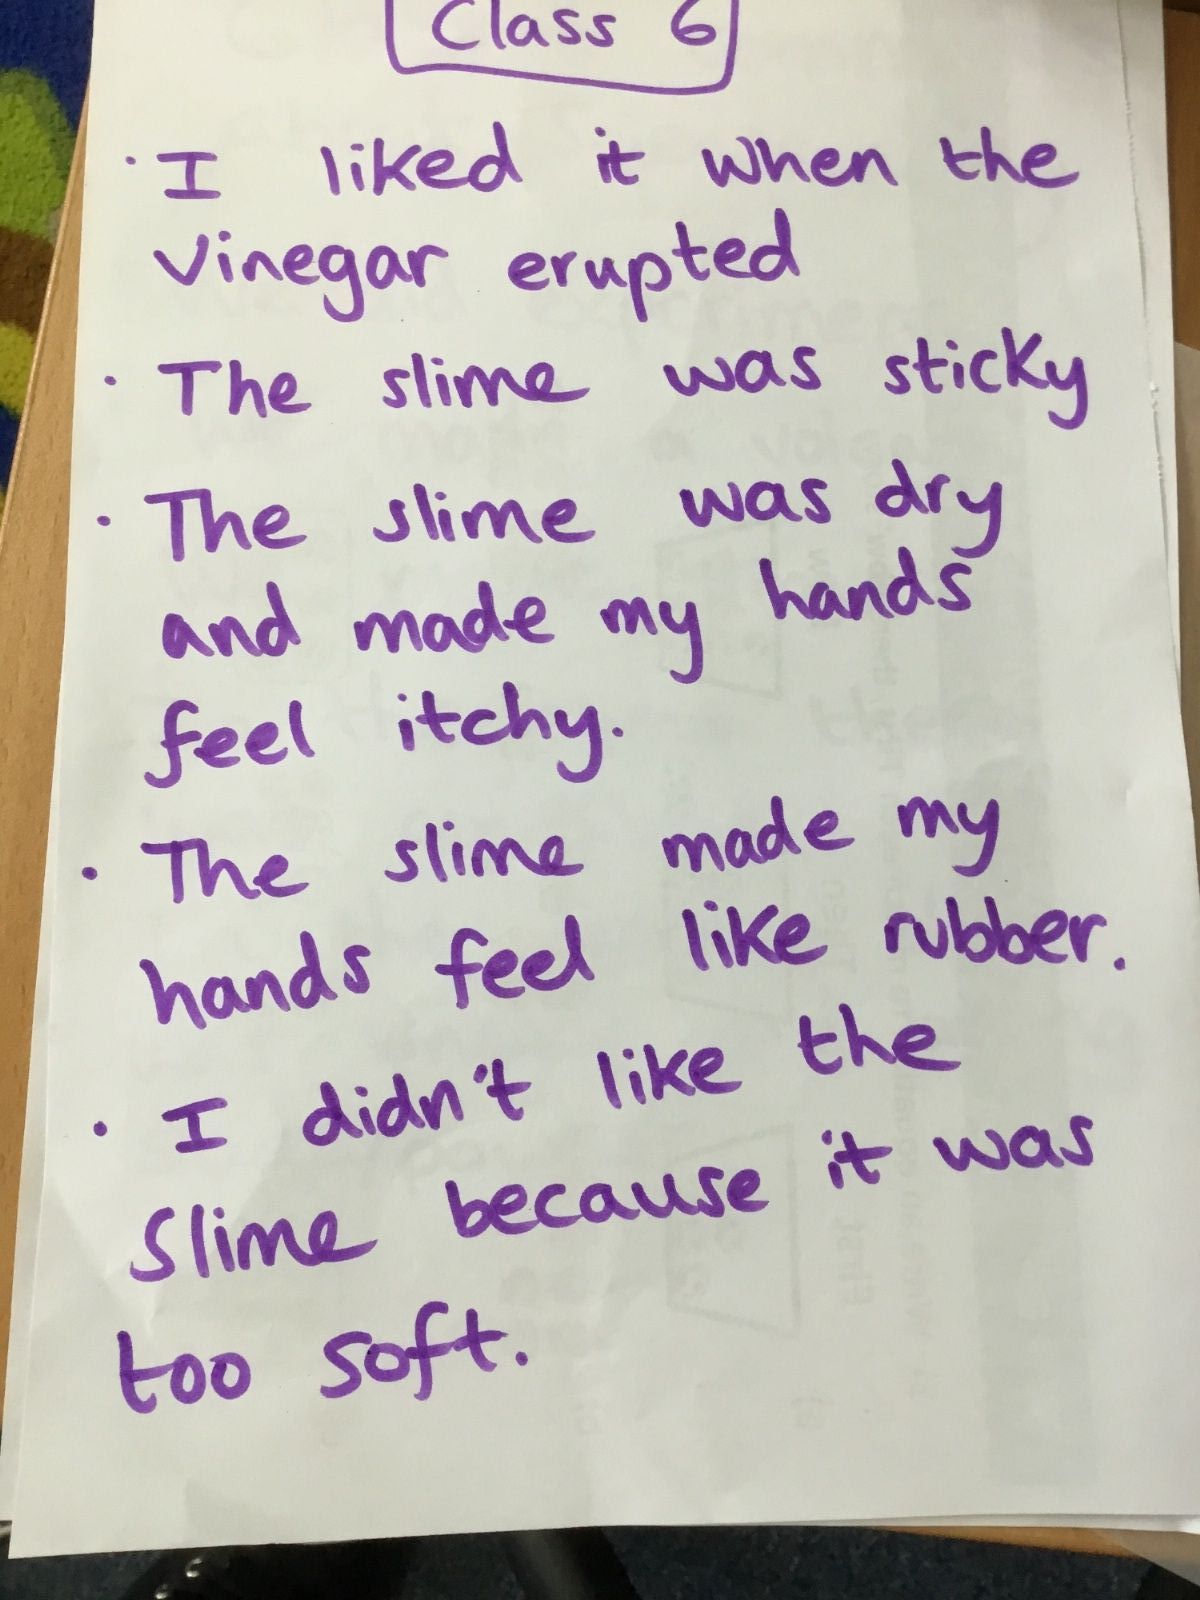 Class 6
· I liked it when the
vinegar erupted
· The slime was sticky
· The slime was dry
and made my hands
feel itchy.
· The slime made my
hands feel like rubber.
· I didn't like the
Slime because it was
too soft.